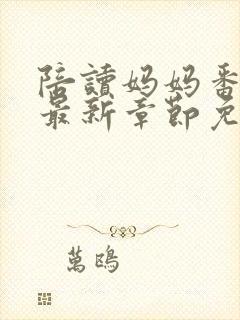 陪讀妈妈番
最新章節免
萬鴎